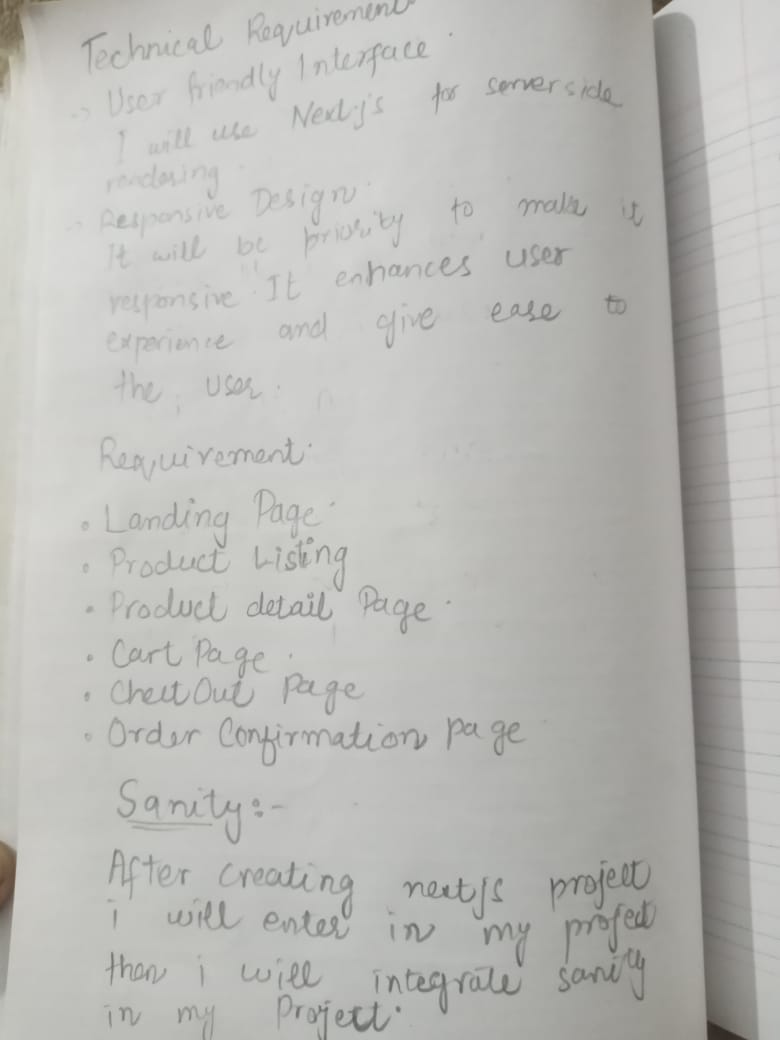 Technical Requirement
-> User friendly Interface.
I will use Next js for server side
rendering.
-> Responsive Design.
It will be priority to make it
responsive. It enhances user
experience and give ease to
the user.
Requirement.
• Landing Page.
• Product Listing
• Product detail Page.
• Cart Page.
• CheckOut Page
• Order Confirmation page
Sanity:-
After creating nextjs project
i will enter in my project
then i will integrate sanity
in my Project.